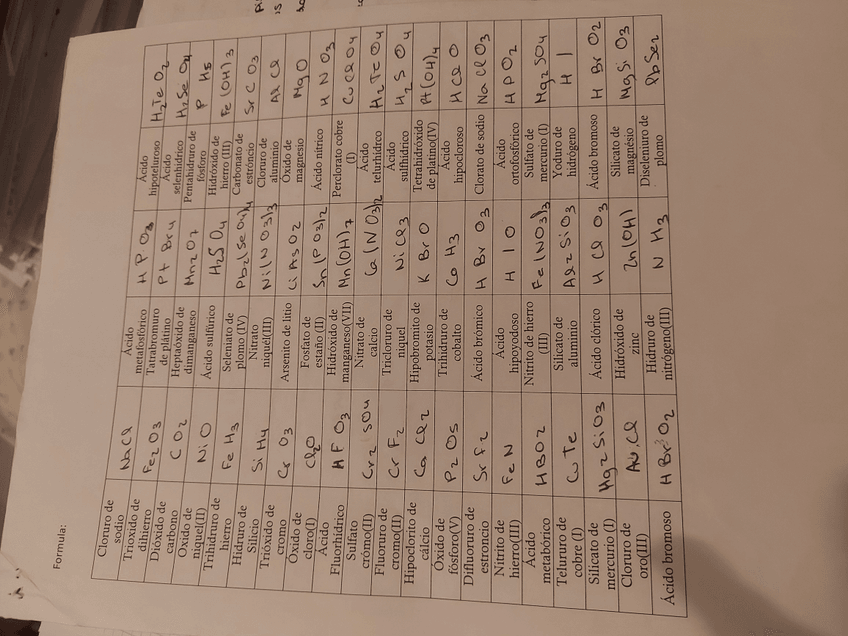 Formula:
Cloruro de sodio NaCl Ácido metafosfórico HPO3 Ácido hipoteluroso H2TeO2
Trioxido de dihierro Fe2O3 Tatrabromuro de plátino PtBr4 Acido selenhídrico H2SeO4
Dióxido de carbono CO2 Heptaóxido de dimanganeso Mn2O7 Pentahidruro de fósforo PH5
Oxido de niquel(II) NiO Ácido sulfúrico H2SO4 Hidróxido de hierro (III) Fe(OH)3
Trihidruro de hierro FeH3 Seleniato de plomo (IV) Pb2(SeO4)4 Carbonato de estroncio SrCO3
Hidruro de Silicio SiH4 Nitrato niquel(III) Ni(NO3)3 Cloruro de aluminio AlCl
Trióxido de cromo CrO3 Arsenito de litio LiAsO2 Óxido de magnesio MgO
Óxido de cloro(I) Cl2O Fosfato de estaño (II) Sn(PO3)2 Ácido nítrico HNO3
Ácido Fluorhídrico HFO3 Hidróxido de manganeso(VII) Mn(OH)7 Perclorato cobre (I) CuClO4
Sulfato crómo(II) Cr2SO4 Nitrato de calcio Ca(NO3)2 Ácido telurhídrco H2TeO4
Fluoruro de cromo(II) CrF2 Tricloruro de niquel NiCl3 Acido sulfhídrico H2SO4
Hipoclorito de cálcio CaCl2 Hipobromito de potasio KBrO Tetrahidróxido de platino(IV) Pt(OH)4
Óxido de fósforo(V) P2O5 Trihidruro de cobalto CoH3 Ácido hipocloroso HClO
Difluoruro de estroncio SrF2 Ácido brómico HBrO3 Clorato de sodio NaClO3
Nitrito de hierro(III) FeN Ácido hipoyodoso HIO Ácido ortofosfórico HPO2
Ácido metabórico HBO2 Nitrito de hierro (III) Fe(NO3)3 Sulfato de mercurio (I) Mg2SO4
Telururo de cobre (I) CuTe Silicato de aluminio Al2SiO3 Yoduro de hidrógeno HI
Silicato de mercurio (I) Hg2SiO3 Ácido clórico HClO3 Ácido bromoso HBrO2
Cloruro de oro(III) AuCl Hidróxido de zinc Zn(OH) Silicato de magnésio MgSiO3
Ácido bromoso HBrO2 Hidruro de nitrógeno(III) NH3 Diseleniuro de plomo PbSe2